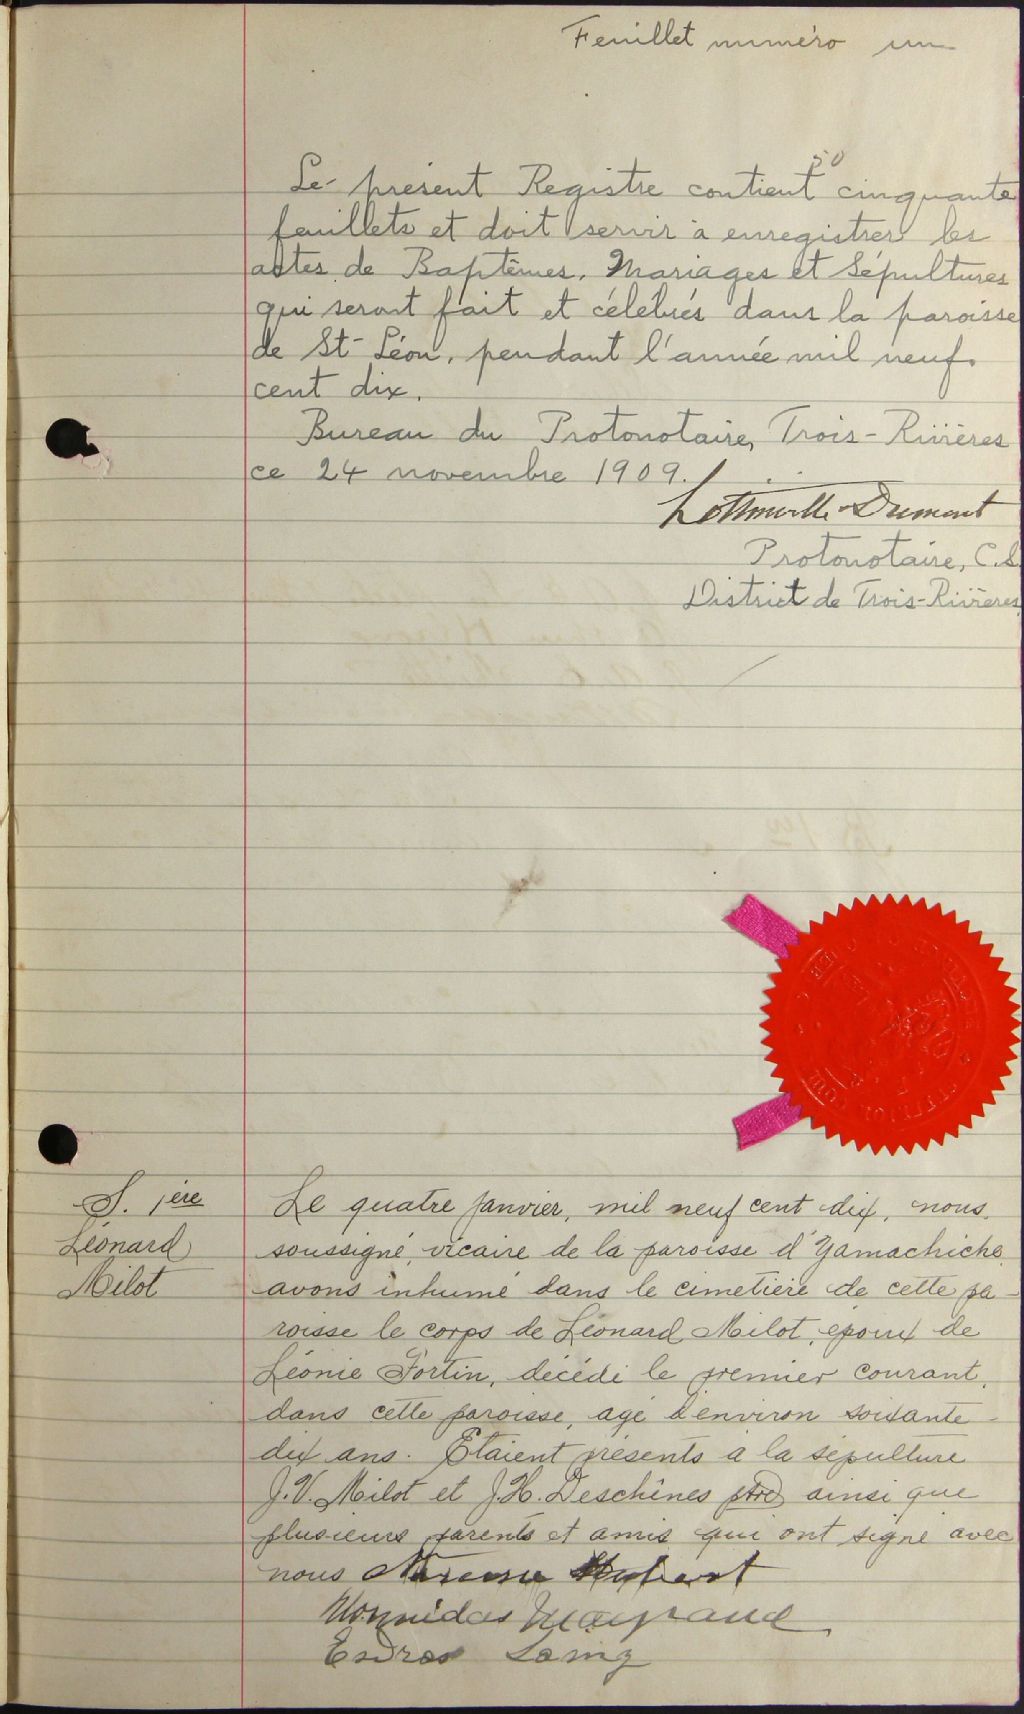 Feuillet numéro un
50
Le présent Registre contient cinquante
feuillets et doit servir à enregistrer les
actes de Baptêmes, Mariages et Sépultures
qui seront fait et célébrés dans la paroisse
de St-Léon, pendant l'année mil neuf
cent dix.
Bureau du Protonotaire, Trois-Rivières
ce 24 novembre 1909.
Lottinville & Dumont
Protonotaire, C.S.
District de Trois-Rivières
S. 1ère
Léonard
Milot
Le quatre janvier, mil neuf cent dix, nous,
soussigné, vicaire de la paroisse d'Yamachiche
avons inhumé dans le cimetière de cette pa-
roisse le corps de Léonard Milot, époux de
Léonie Fortin, décédé le premier courant,
dans cette paroisse, agé d'environ soixante-
dix ans. Étaient présents à la sépulture
J.V. Milot et J.H. Deschênes ptre ainsi que
plusieurs parents et amis qui ont signé avec
nous
Esdras Lamy